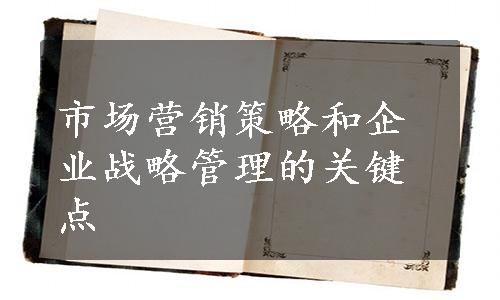 市场营销策略和企
业战略管理的关键
点